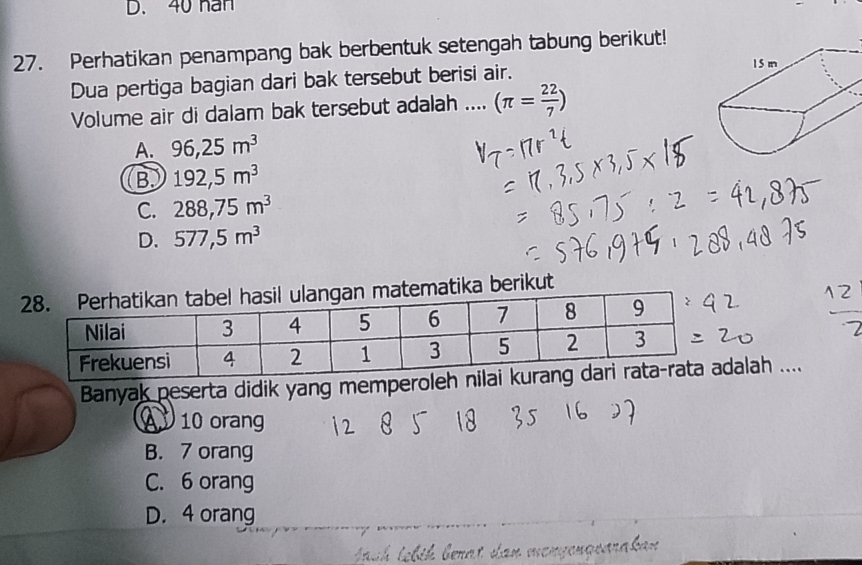 D. 40 hari
27. Perhatikan penampang bak berbentuk setengah tabung berikut!
Dua pertiga bagian dari bak tersebut berisi air.
Volume air di dalam bak tersebut adalah .... (π = 22/7)
15 m
A. 96,25 m³
B. 192,5 m³
C. 288,75 m³
D. 577,5 m³
V_T = πr²t
= π. 3,5 × 3,5 × 15
= 85,75 : 2 = 42,875
= 576,975 : 288,4875
28. Perhatikan tabel hasil ulangan matematika berikut
Nilai 3 4 5 6 7 8 9 = 42
Frekuensi 4 2 1 3 5 2 3 = 20
12
2
Banyak peserta didik yang memperoleh nilai kurang dari rata-rata adalah ....
A. 10 orang
12 8 5 18 35 16 27
B. 7 orang
C. 6 orang
D. 4 orang